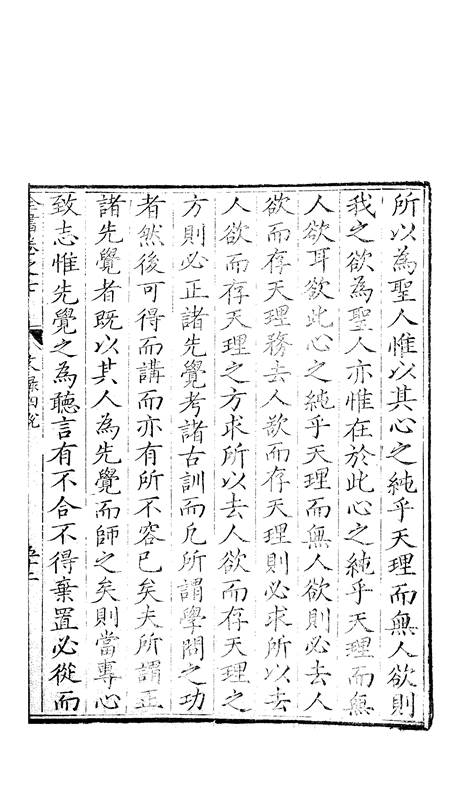 所以為聖人惟以其心之純乎天理而無人欲則
我之欲為聖人亦惟在於此心之純乎天理而無
人欲耳欲此心之純乎天理而無人欲則必去人
欲而存天理務去人欲而存天理則必求所以去
人欲而存天理之方求所以去人欲而存天理之
方則必正諸先覺考諸古訓而凡所謂學問之功
者然後可得而講而亦有所不容已矣夫所謂正
諸先覺者既以其人為先覺而師之矣則當專心
致志惟先覺之為聽言有不合不得棄置必從而
全書卷之七 文錄四說